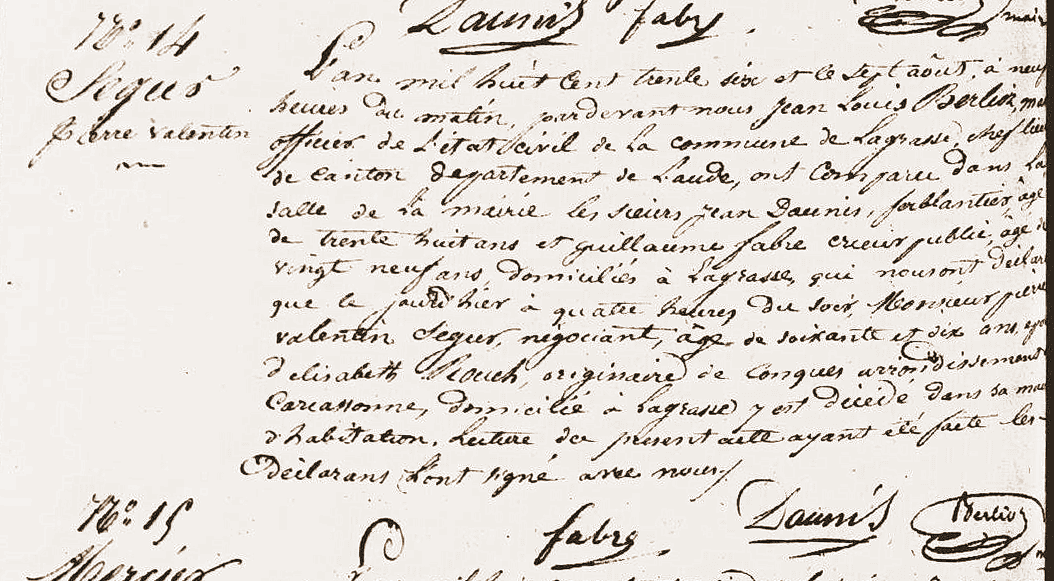 Daunis fabre
N.o 14
Segur
pierre valentin
L'an mil huit cent trente six et le sept août, à neuf
heures du matin, pardevant nous jean Louis Berlioz,
officier de L'état civil de la commune de Lagrasse, chef lieu
de canton departement de Laude, ont comparu dans La
salle de la mairie les sieurs jean Daunis, ferblantier, âgé
de trente huit ans et guillaume fabre crieur public, âgé
vingt neuf ans, domiciliés à Lagrasse, qui nous ont déclaré
que le jourd'hier à quatre heures du soir, Monsieur pierre
valentin Segur, négociant, âgé de soixante et dix ans,
d'elisabeth originaire de Conques arrondissement
Carcassonne, domicilié à Lagrasse y est décédé dans sa
d'habitation. Lecture du present acte ayant été faite les
déclarans L'ont signé avec nous
N.o 15
fabre Daunis Berlioz
Mercier